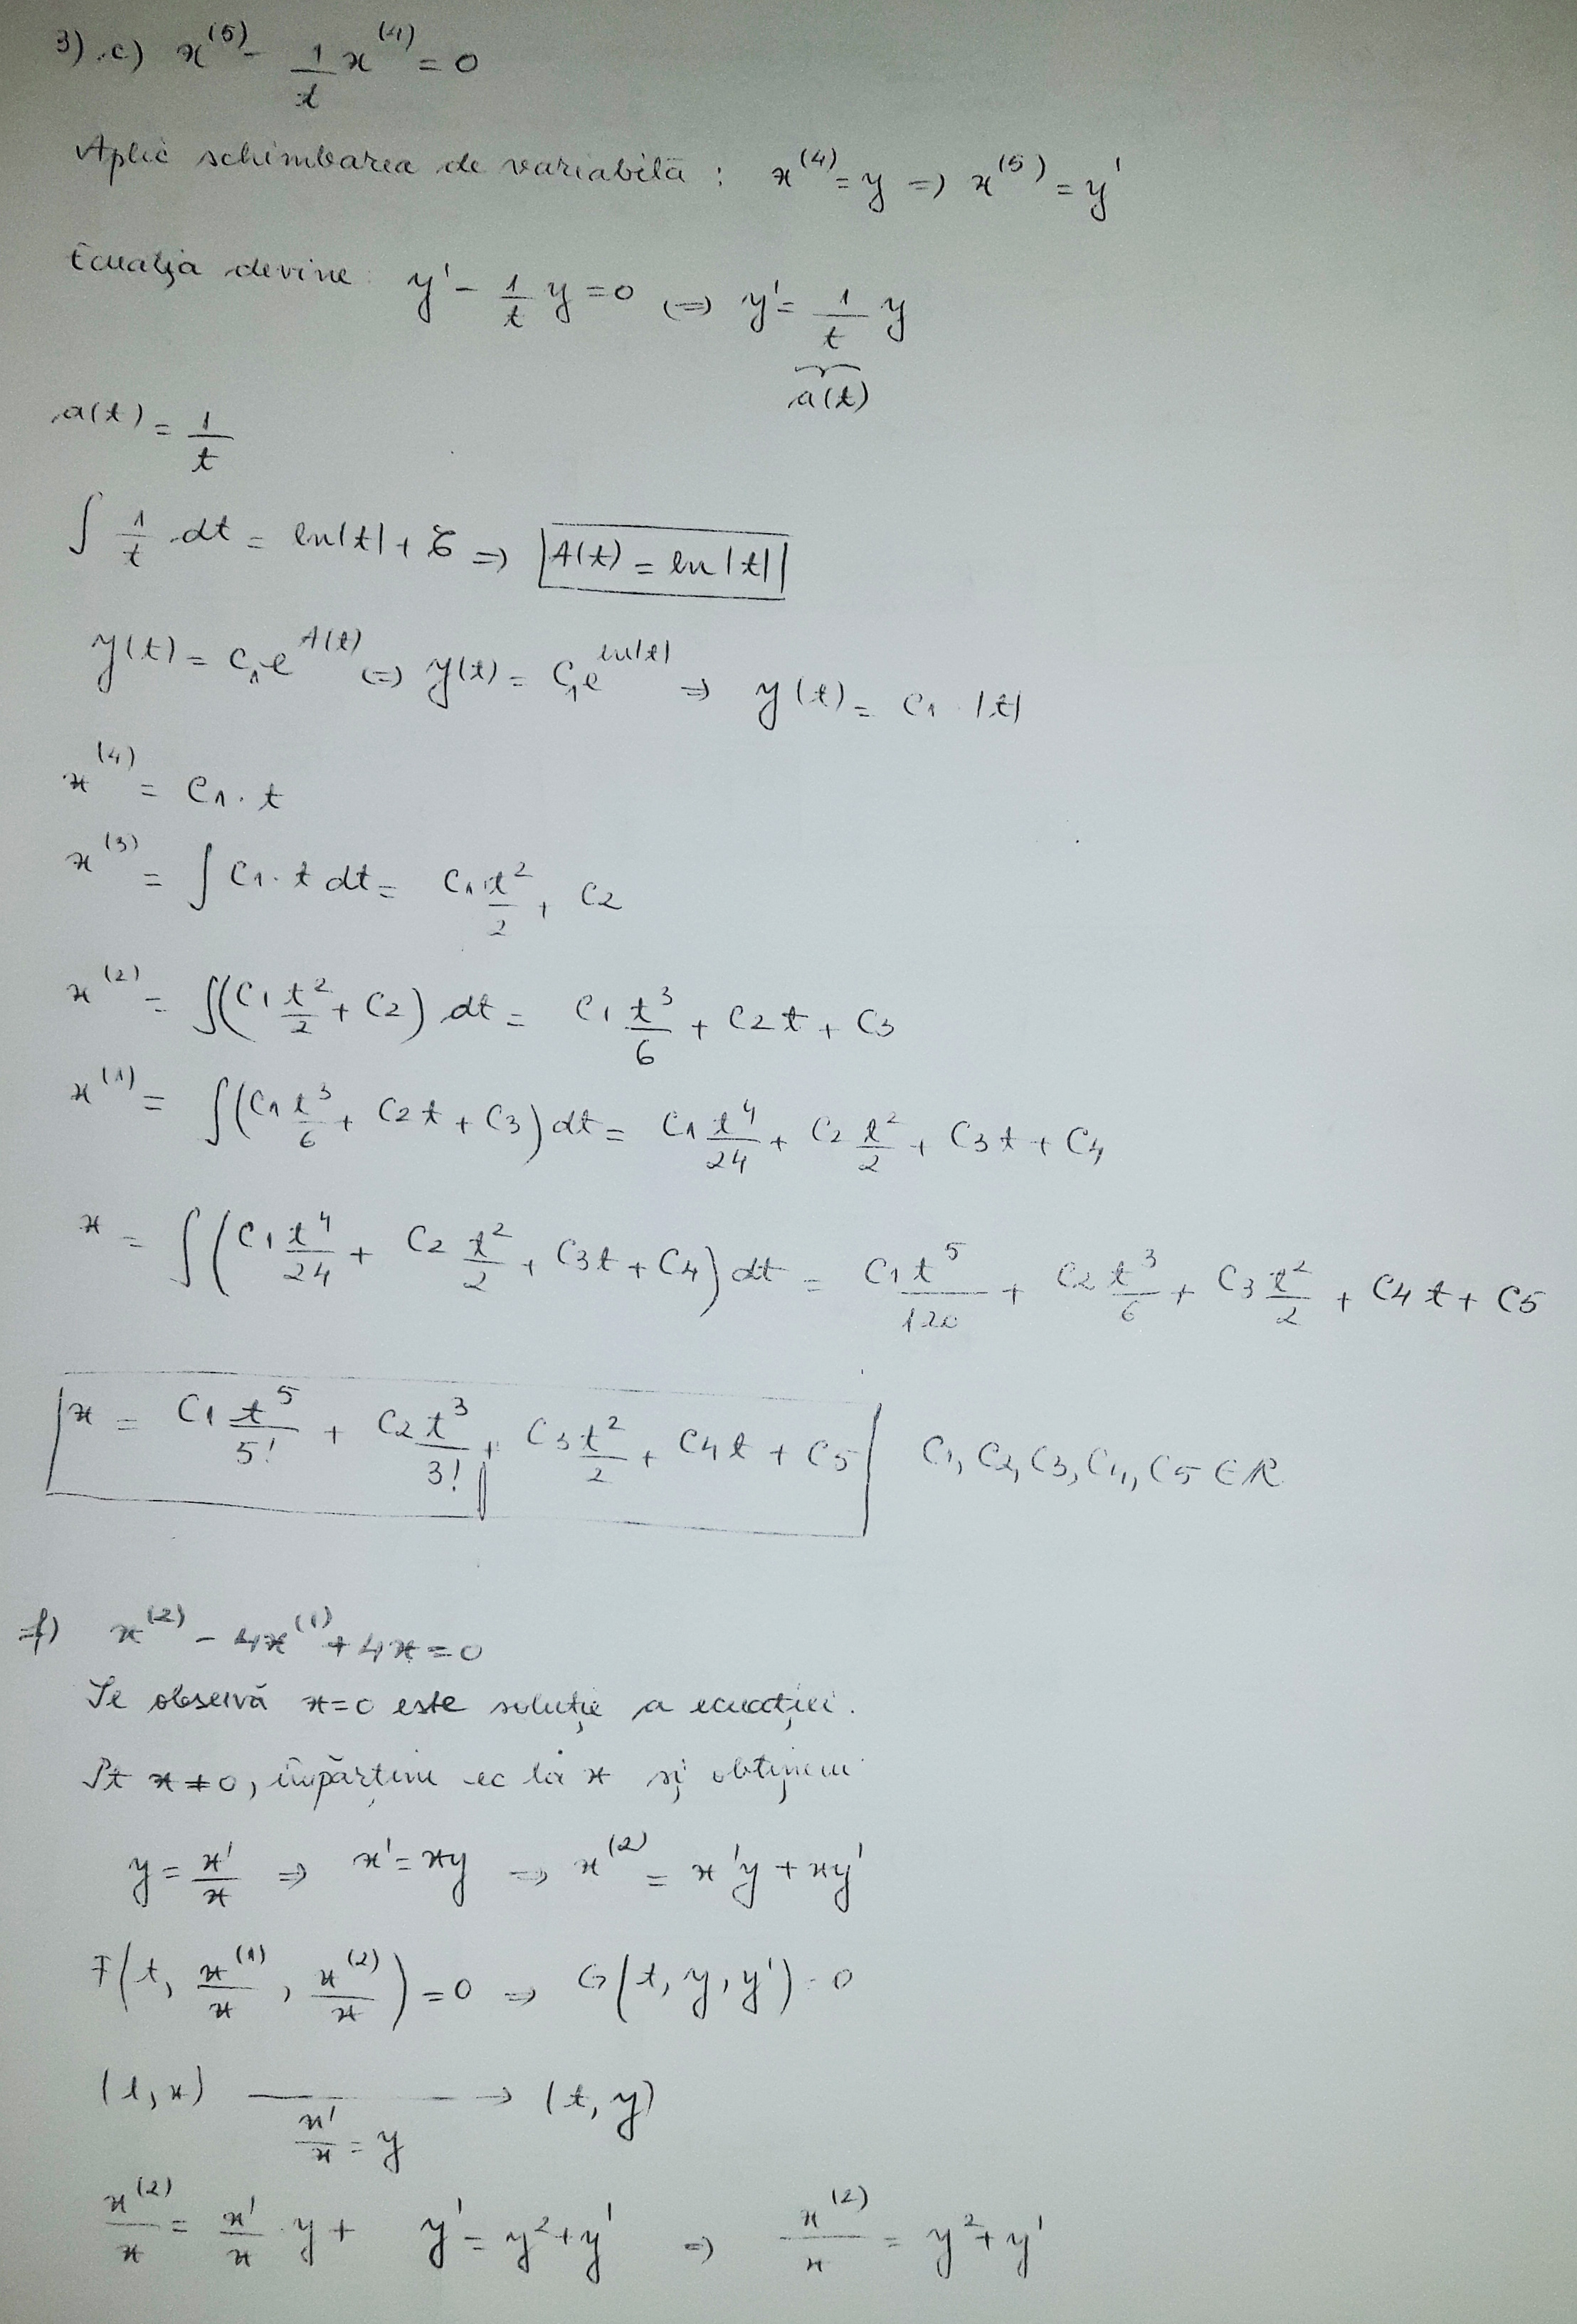 3) c) x^(5) - 1/t x^(4) = 0
Aplic schimbarea de variabilă : x^(4) = y => x^(5) = y'
Ecuația devine: y' - 1/t y = 0 <=> y' = 1/t y
a(t)
a(t) = 1/t
∫ 1/t dt = ln|t| + C => A(t) = ln|t|
y(t) = C1 e^A(t) <=> y(t) = C1 e^ln|t| => y(t) = C1 · |t|
x^(4) = C1 · t
x^(3) = ∫ C1 · t dt = C1 t^2/2 + C2
x^(2) = ∫(C1 t^2/2 + C2) dt = C1 t^3/6 + C2 t + C3
x^(1) = ∫(C1 t^3/6 + C2 t + C3) dt = C1 t^4/24 + C2 t^2/2 + C3 t + C4
x = ∫(C1 t^4/24 + C2 t^2/2 + C3 t + C4) dt = C1 t^5/120 + C2 t^3/6 + C3 t^2/2 + C4 t + C5
x = C1 t^5/5! + C2 t^3/3! + C3 t^2/2 + C4 t + C5 C1, C2, C3, C4, C5 ∈ R
f) x^(2) - 4x^(1) + 4x = 0
Se observă x=0 este soluție a ecuației.
Pt x ≠ 0, împărțim ec la x și obținem
y = x'/x => x' = xy => x^(2) = x'y + xy'
F(t, x^(1)/x, x^(2)/x) = 0 => G(t, y, y') = 0
(t, x) ⟶ (t, y)
x'/x = y
x^(2)/x = x'/x · y + y' = y^2 + y' => x^(2)/x = y^2 + y'